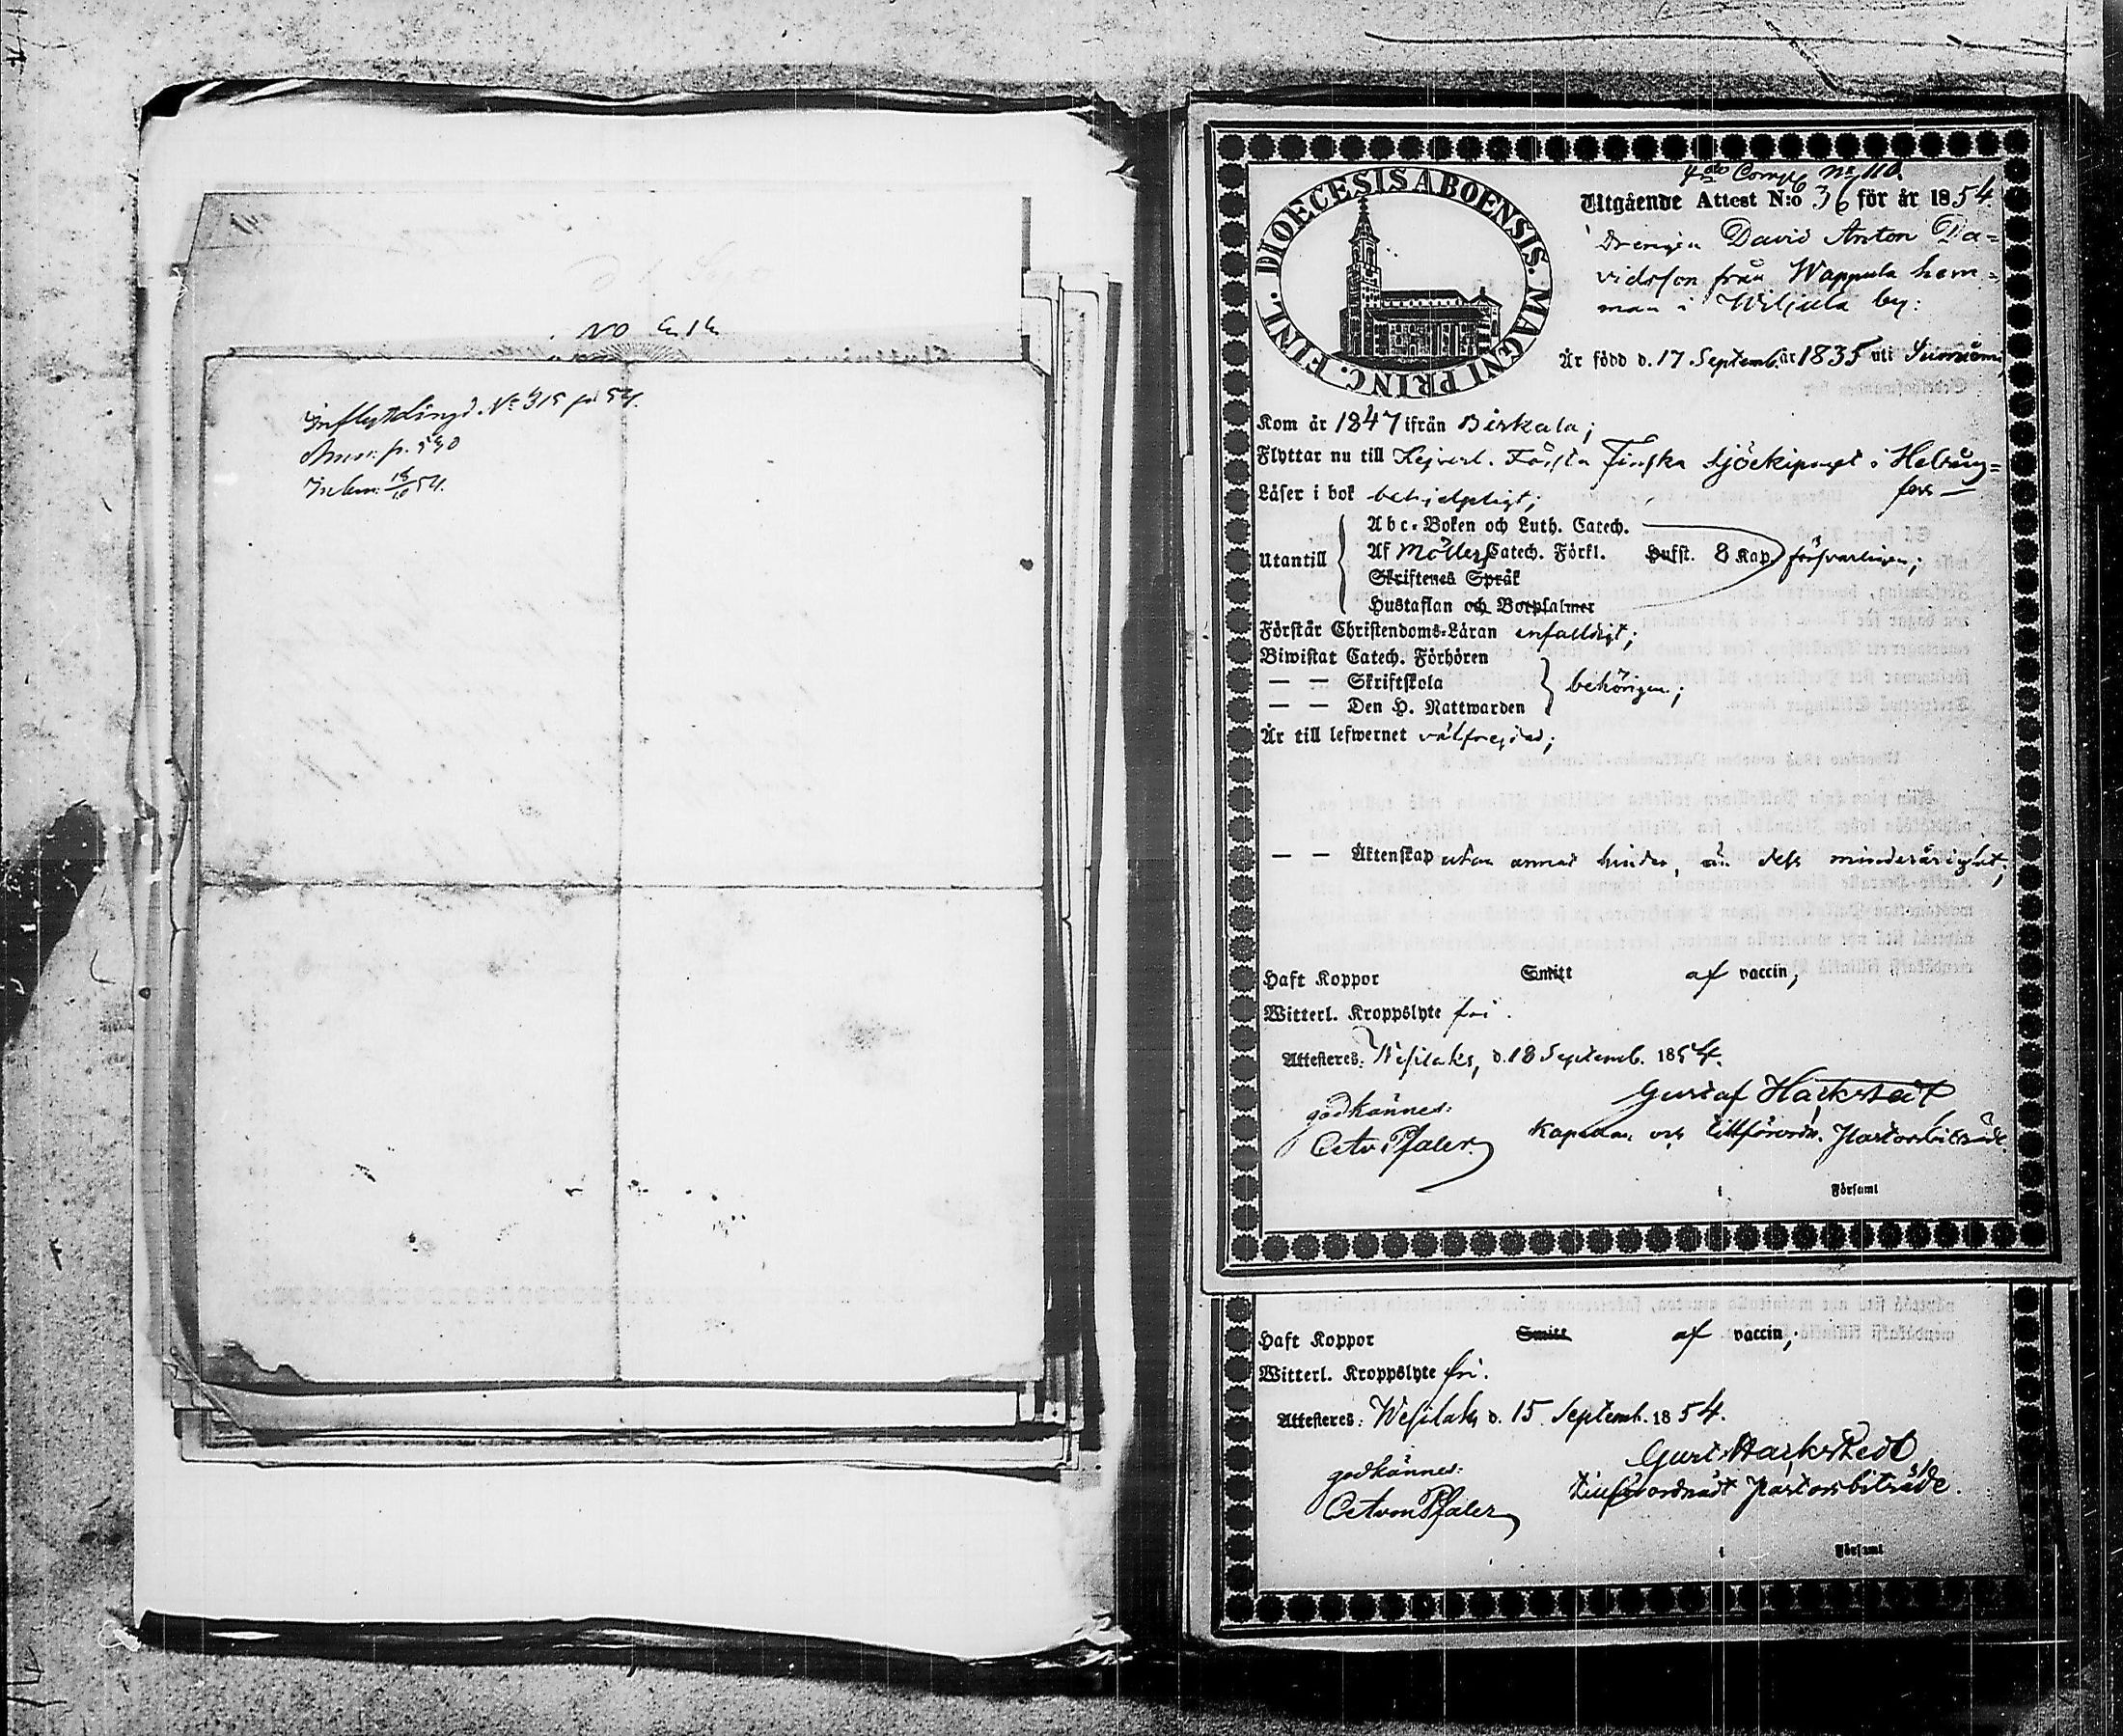 Inflyttlängd. No 315 på 54.
p. 590
54.
4de Comp. No 110.
DIOECESIS ABOENSIS. MAGNI PRINC. FINL.
Utgående Attest N:o 36 för år 1854.
Drengen David Anton Da=
vidsson från Wappula hem=
man i Wiljala by:
Är född d. 17 Septemb. år 1835 uti
Kom år 1847 ifrån Birkala;
Flyttar nu till Kejserl. Första Finska Sjöekipaget i Helsing=
fors —
Läser i bok behjelpligt;
Utantill
Abc-Boken och Luth. Catech.
Af Möllers Catech. Förkl. Hufst. 8 Kap. försvarligen;
Skriftenes Språk
Hustaflan och Botpsalmer
Förstår Christendoms-Läran enfaldigt;
Biwistat Catech. Förhören
— — Skriftskola behörigen;
— — Den H. Nattwarden
Är till lefwernet välfrejdad;
— — Äktenskap utan annat hinder, än dess minderårighet;
Haft Koppor Smitt af vaccin,
Witterl. Kroppslyte fri.
Attesteres: Wesilaks, d. 18 Septemb. 1854.
Gustaf Hackstedt
godkännes:
Kapellan och tillförordn. Pastorsbiträde.
Aetv Pfaler.
i Församl
Haft Koppor Smitt af vaccin,
Witterl. Kroppslyte fri.
Attesteres: Wesilaks d. 15 Septemb. 1854.
Gust Hackstedt
godkännes:
tillförordnadt Pastorsbiträde.
von Pfaler
i Församl